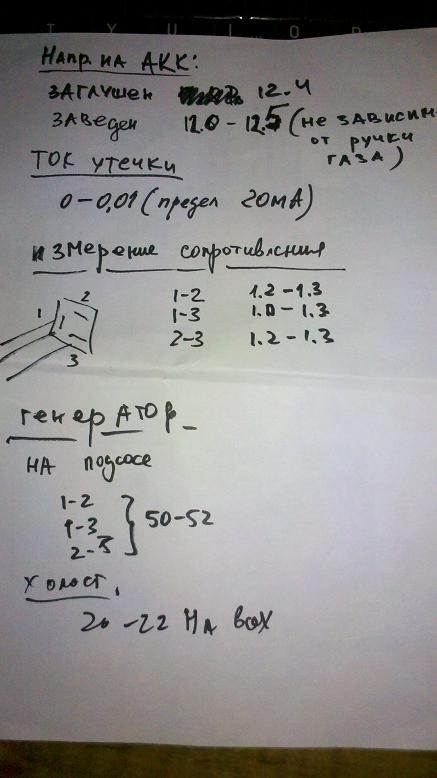 T Y U I O P
Напр. на АКК:
ЗАГлушен 12.4
ЗАВеден 12.0 - 12.5 (не зависим
от ручки
газа)
ТОК утечки
0-0,01 (предел 20мА)
измерение сопротивления
2
1
3
1-2 1.2-1.3
1-3 1.0-1.3
2-3 1.2-1.3
генерАТОР
НА подсосе
1-2
1-3
2-3
50-52
Холост.
20-22 НА ВСХ